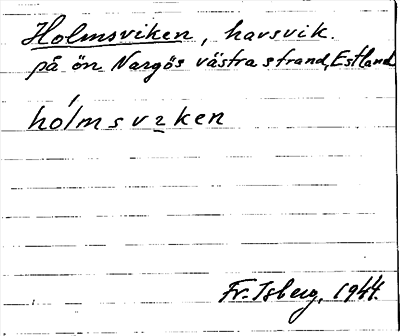 Holmsviken, havsvik.
på ön Nargös västra strand, Estland
hólmsvıken
Fr. Isberg, 1944.